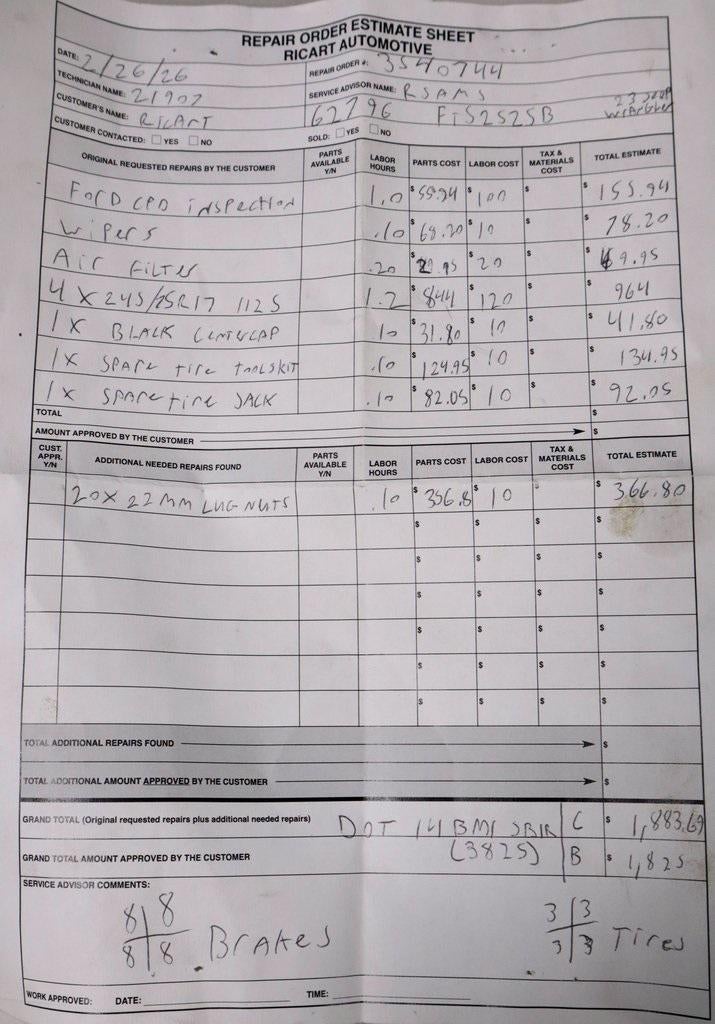 REPAIR ORDER ESTIMATE SHEET
RICART AUTOMOTIVE
DATE: 2/26/26 REPAIR ORDER #: 3540744
TECHNICIAN NAME: 21902 SERVICE ADVISOR NAME: RSAMS
CUSTOMER'S NAME: RICART 62796 FTS2525B 23 JEEP WrAngler
CUSTOMER CONTACTED: YES NO SOLD: YES NO
ORIGINAL REQUESTED REPAIRS BY THE CUSTOMER PARTS AVAILABLE Y/N LABOR HOURS PARTS COST LABOR COST TAX & MATERIALS COST TOTAL ESTIMATE
FORD CPO INSPECTION 1.0 $ 55.94 $ 100 $ $ 155.94
WIPERS .10 $ 68.20 $ 10 $ $ 78.20
AIR FILTER .20 $ 29.95 $ 20 $ $ 49.95
4 X 245/75R17 112S 1.2 $ 844 $ 120 $ $ 964
1X BLACK CENTERCAP .10 $ 31.80 $ 10 $ $ 41.80
1X SPARE tire TOOLSKIT .10 $ 124.95 $ 10 $ $ 134.95
1X SPARE tire JACK .10 $ 82.05 $ 10 $ $ 92.05
TOTAL $
AMOUNT APPROVED BY THE CUSTOMER $
CUST. APPR. Y/N ADDITIONAL NEEDED REPAIRS FOUND PARTS AVAILABLE Y/N LABOR HOURS PARTS COST LABOR COST TAX & MATERIALS COST TOTAL ESTIMATE
20X 22MM LUG NUTS .10 $ 356.8 $ 10 $ 366.80
$ $ $ $
$ $ $ $
$ $ $ $
$ $ $ $
$ $ $ $
$ $ $ $
TOTAL ADDITIONAL REPAIRS FOUND $
TOTAL ADDITIONAL AMOUNT APPROVED BY THE CUSTOMER $
GRAND TOTAL (Original requested repairs plus additional needed repairs) DOT 14 BM1 JB1R C $ 1,883.69
GRAND TOTAL AMOUNT APPROVED BY THE CUSTOMER (3825) B $ 1,825
SERVICE ADVISOR COMMENTS:
8 8 3 3
8 8 Brakes 3 3 Tires
WORK APPROVED: DATE: TIME: